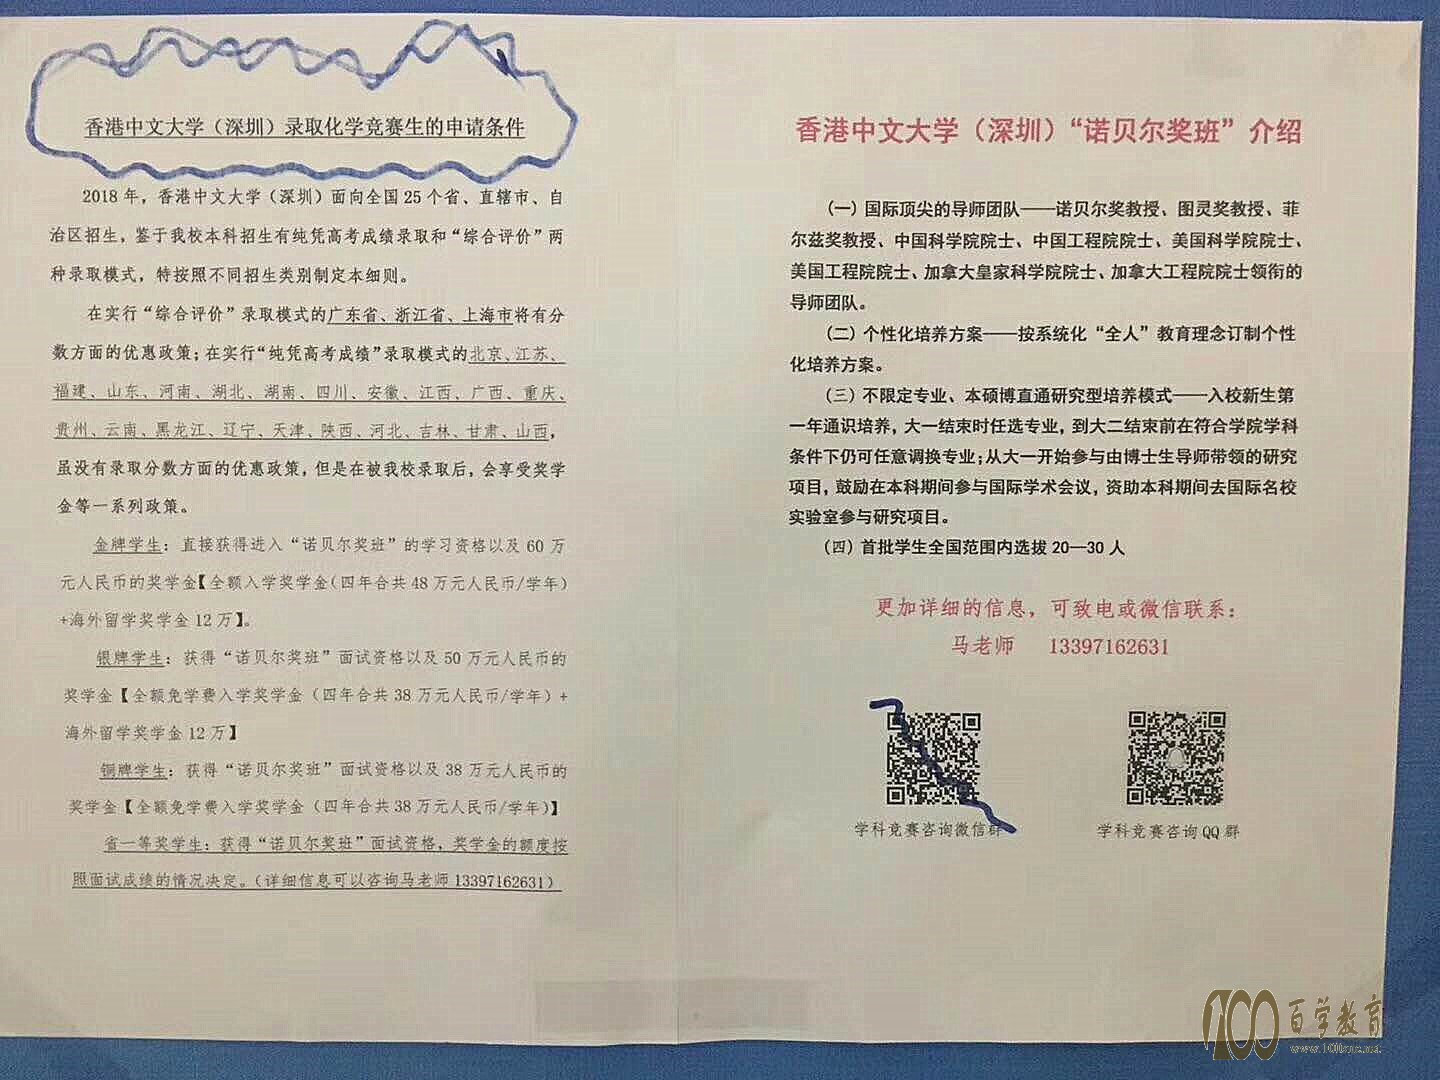 香港中文大学（深圳）录取化学竞赛生的申请条件
2018 年，香港中文大学（深圳）面向全国 25 个省、直辖市、自
治区招生，鉴于我校本科招生有纯凭高考成绩录取和“综合评价”两
种录取模式，特按照不同招生类别制定本细则。
在实行“综合评价”录取模式的广东省、浙江省、上海市将有分
数方面的优惠政策；在实行“纯凭高考成绩”录取模式的北京、江苏、
福建、山东、河南、湖北、湖南、四川、安徽、江西、广西、重庆、
贵州、云南、黑龙江、辽宁、天津、陕西、河北、吉林、甘肃、山西，
虽没有录取分数方面的优惠政策，但是在被我校录取后，会享受奖学
金等一系列政策。
金牌学生：直接获得进入“诺贝尔奖班”的学习资格以及 60 万
元人民币的奖学金【全额入学奖学金（四年合共 48 万元人民币/学年）
+海外留学奖学金 12 万】。
银牌学生：获得“诺贝尔奖班”面试资格以及 50 万元人民币的
奖学金【全额免学费入学奖学金（四年合共 38 万元人民币/学年）+
海外留学奖学金 12 万】
铜牌学生：获得“诺贝尔奖班”面试资格以及 38 万元人民币的
奖学金【全额免学费入学奖学金（四年合共 38 万元人民币/学年）】
省一等奖学生：获得“诺贝尔奖班”面试资格，奖学金的额度按
照面试成绩的情况决定。（详细信息可以咨询马老师 13397162631）
香港中文大学（深圳）“诺贝尔奖班”介绍
（一）国际顶尖的导师团队——诺贝尔奖教授、图灵奖教授、菲
尔兹奖教授、中国科学院院士、中国工程院院士、美国科学院院士、
美国工程院院士、加拿大皇家科学院院士、加拿大工程院院士领衔的
导师团队。
（二）个性化培养方案——按系统化“全人”教育理念订制个性
化培养方案。
（三）不限定专业、本硕博直通研究型培养模式——入校新生第
一年通识培养，大一结束时任选专业，到大二结束前在符合学院学科
条件下仍可任意调换专业；从大一开始参与由博士生导师带领的研究
项目，鼓励在本科期间参与国际学术会议，资助本科期间去国际名校
实验室参与研究项目。
（四）首批学生全国范围内选拔 20—30 人
更加详细的信息，可致电或微信联系：
马老师 13397162631
学科竞赛咨询微信群
学科竞赛咨询 QQ 群
100 百学教育